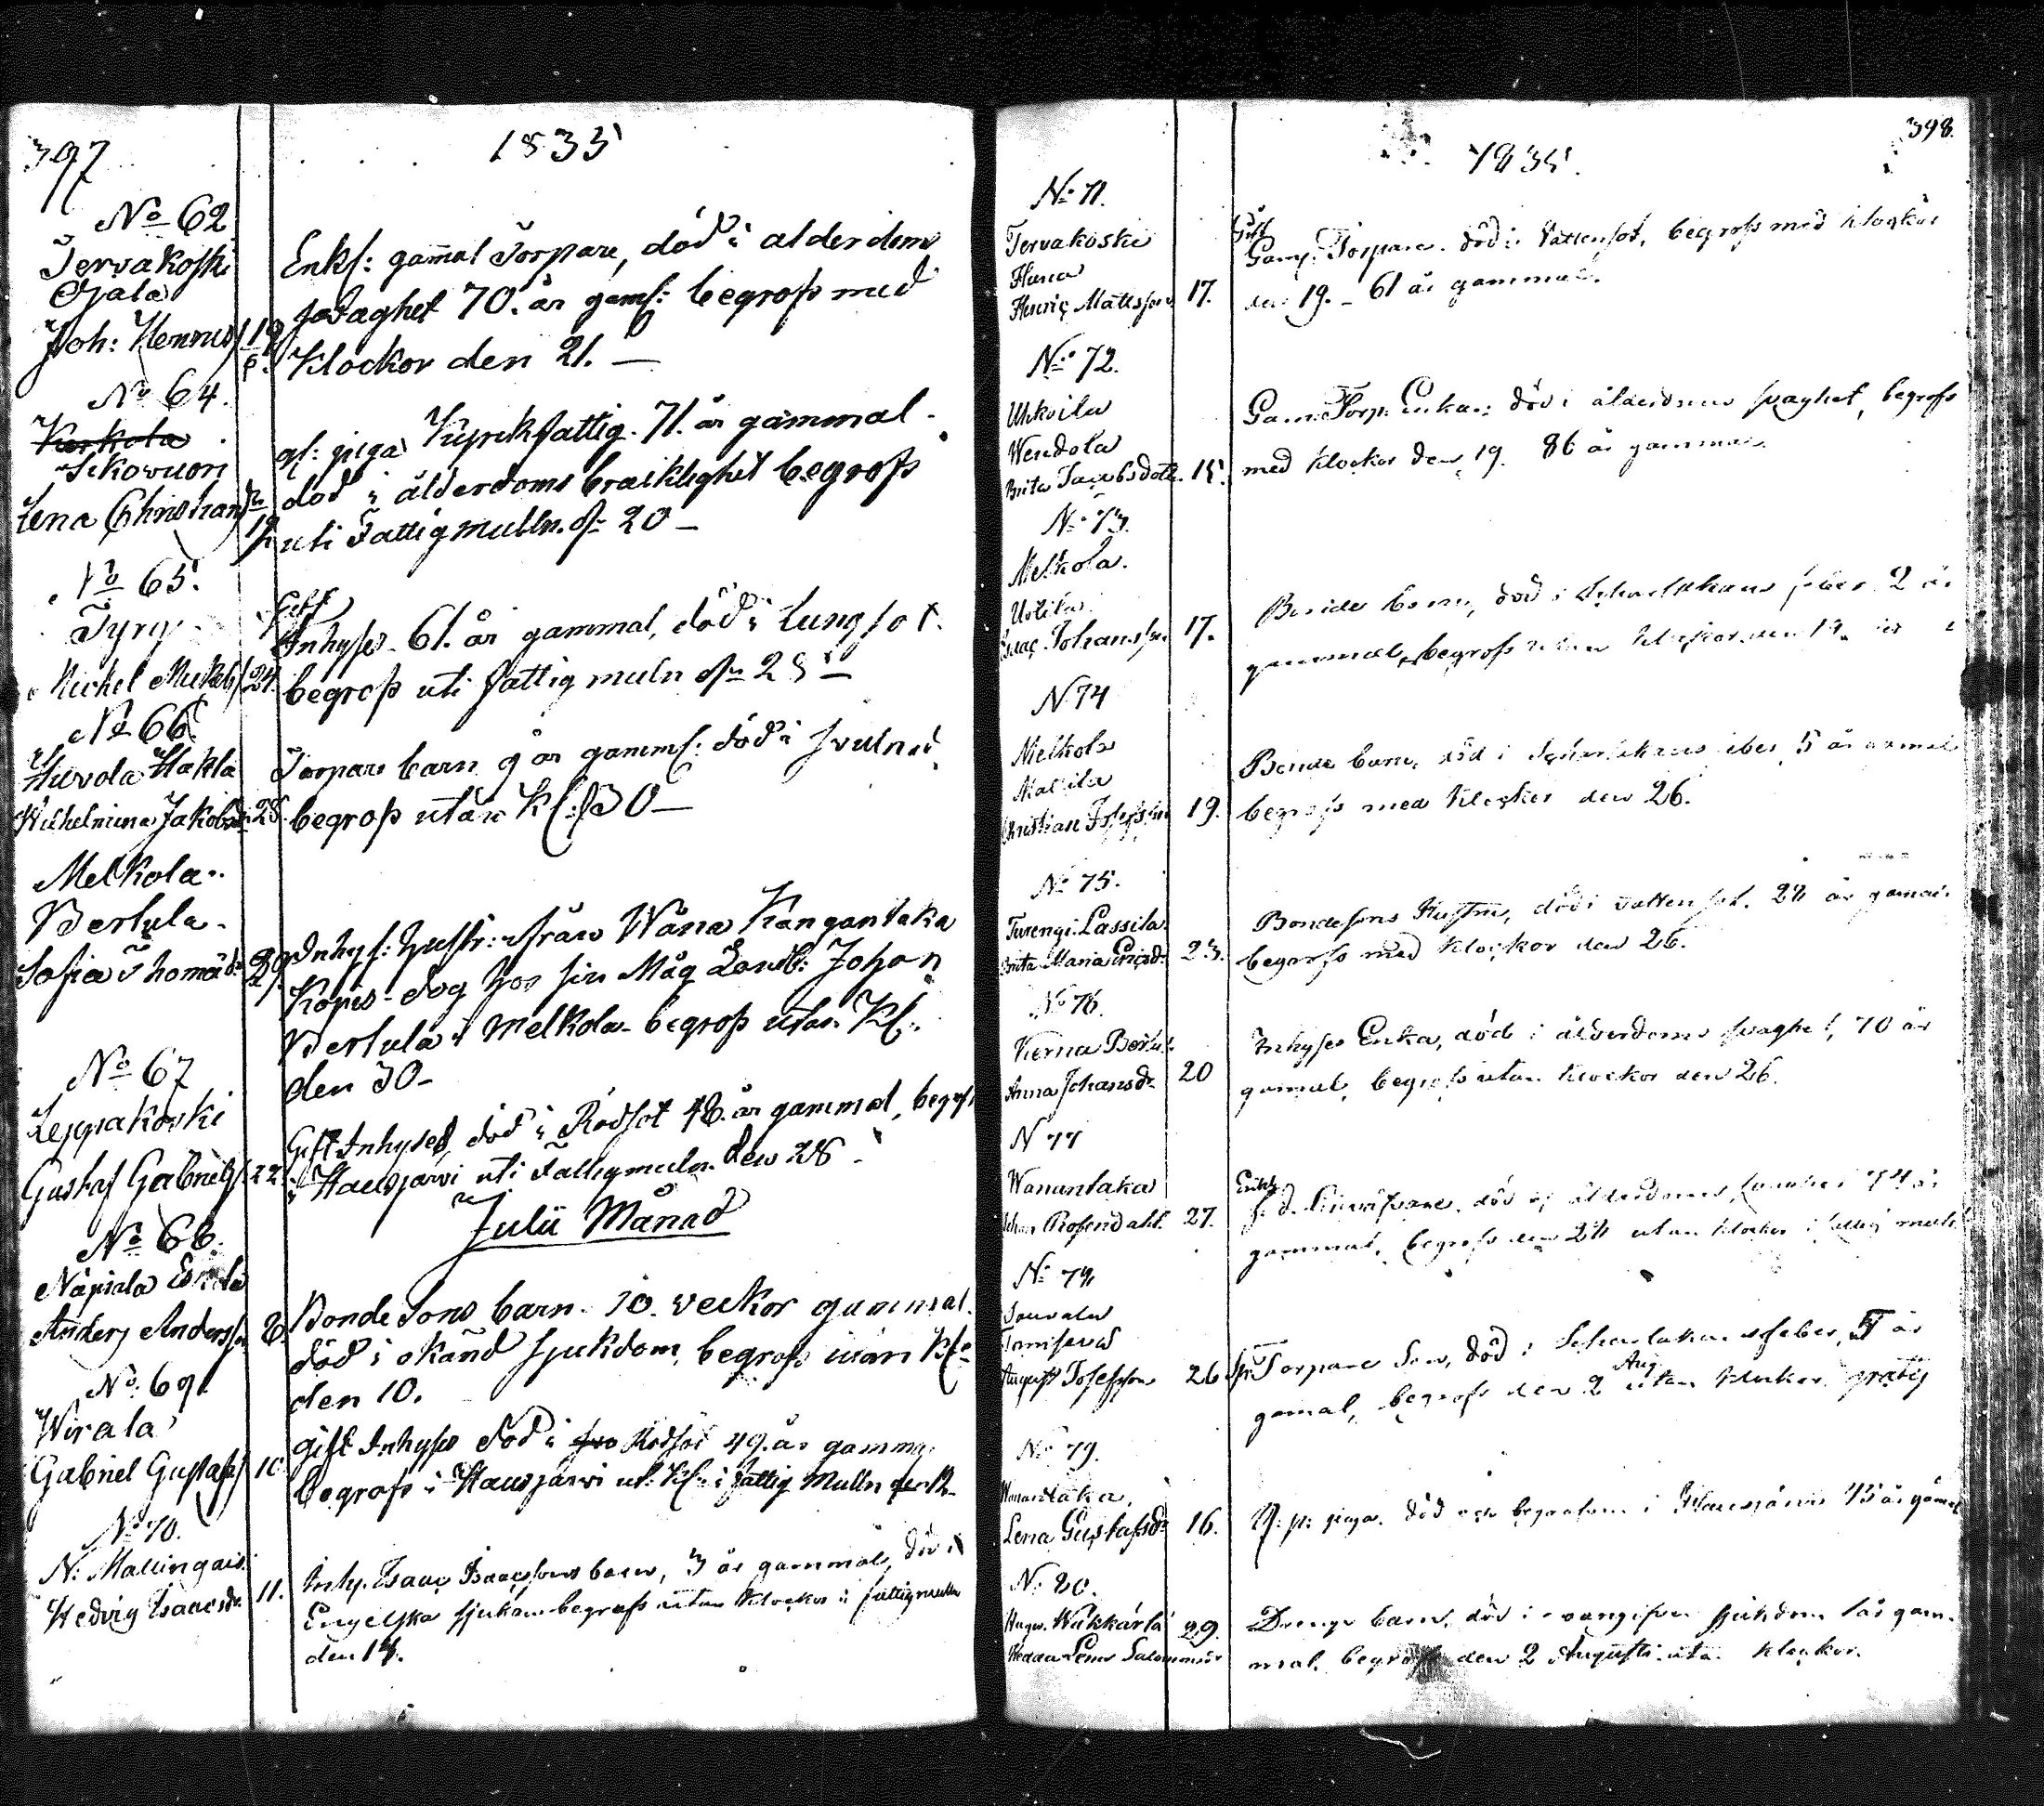 397
1835
No 62
Tervakoski
Ojala
Joh: Henrics 19/6
Enkl: gamal Torpare, död i alderdoms
svaghet 70. år gaml: begrofs med
Klockor den 21. —
No 64.
Kerkola
Sikovuori
Lena Christiansdr 17
gl: piga Kyrckfattig. 71. år gammal.
död i ålderdoms bräcklighet begrofs
uti Fattigmulln. d. 20 —
No 65.
Tyry
Michel Mickels 24.
Gift
Inhyses. 61. år gammal, död i Lungsot.
begrofs uti fattig muln dn 25 —
No 66
Turola Hakla
Wilhelmina Jakobsdr 28.
Torpare barn 9 år gamml: död i svulnad
begrofs utan Kl: d 30 —
Melkola.
Bertula.
Sofia Thomædr 29
Inhys: hustr: ifrån Wåna Kangantaka
dog hos sin Måg Landb: Johan
Bertula i Melkola. begrofs utan Kl:
den 30 —
No 67
Leppakoski
Gustaf Gabriels. 22.
Gift Inhyses, död i Rödsot 48. år gammal, begrofs
i Hausjärvi uti Fattigmuln. den 28.
Julii Månad
No 68.
Näpiala Eskola
Anders Andersson 8.
Bonde Sons barn. 10. veckor gammal.
död i okänd sjukdom, begrofs utan Kl:
den 10.
No: 69.
Wirala
Gabriel Gustafs 10
gift Inhyses död i Rödsot 49. år gammal.
begrofs i Hausjärvi ut: Kl: i fattig Mulln den 12.
No 70.
N: Mallingais.
Hedvig Isaacsdr. 11.
Inhy. Isaac Isaacssons barn, 3 år gammal, död i
Engelska sjukan begrofs utan klockor i fattigmulln
den 14.
398.
1835.
No 71.
Tervakoski
Hana
Henric Mattsson 17.
Gift
Gam: Torpare. död i Vattensot, begrofs med klockor
den 19. — 61 år gammal.
No 72.
Uhkoila
Wendola
Brita Jacobsdotr. 15.
Gam: Torp: Enka: död i ålderdoms svaghet, begrofs
med klockor den 19. 86 år gammal.
No 73.
Melkola.
Uotila
Isaac Johansson 17.
Bonde barn, död i Scharlakans feber 2 år
gammal, begrofs utan klockor den 19.
N 74
Melkola
Mattila
Christian Josefsson 19.
Bonde barn, död i Scharlakans feber 5 år gamal
begrofs med klockor den 26.
No 75.
Turengi Lassila
Brita Maria Ericsdr 23.
Bondesons Hustru, död i vatten sot. 28 år gamal.
begrofs med klockor den 26.
No 76.
Kerna
Anna Johansdr. 20
Inhyses Enka, död i ålderdoms svaghet, 70 år
gamal, begrofs utan klockor den 26.
N 77
Wanantaka
Johan Rosendahl. 27.
Enkl.
f. d. död af ålderdoms 74 år
gammal, begrofs den 28 utan klockor i fattig muln
No 78
August Josefsson 26
Torpare Son, död i Scharlakans feber, 5 år
gamal, begrofs den 2 Aug utan klockor gratis
No 79.
Wanantaka,
Lena Gustafsdr 16.
piga. död och begrafven i Hausjärvi 75 år gamal
No 80.
Hagar. Wäkkärlä
Hedda Lena Salomonsdr 29.
Drengs barn, död i ovangifven sjukdom 1 år gam-
mal. begrofs den 2 Augusti utan klockor.